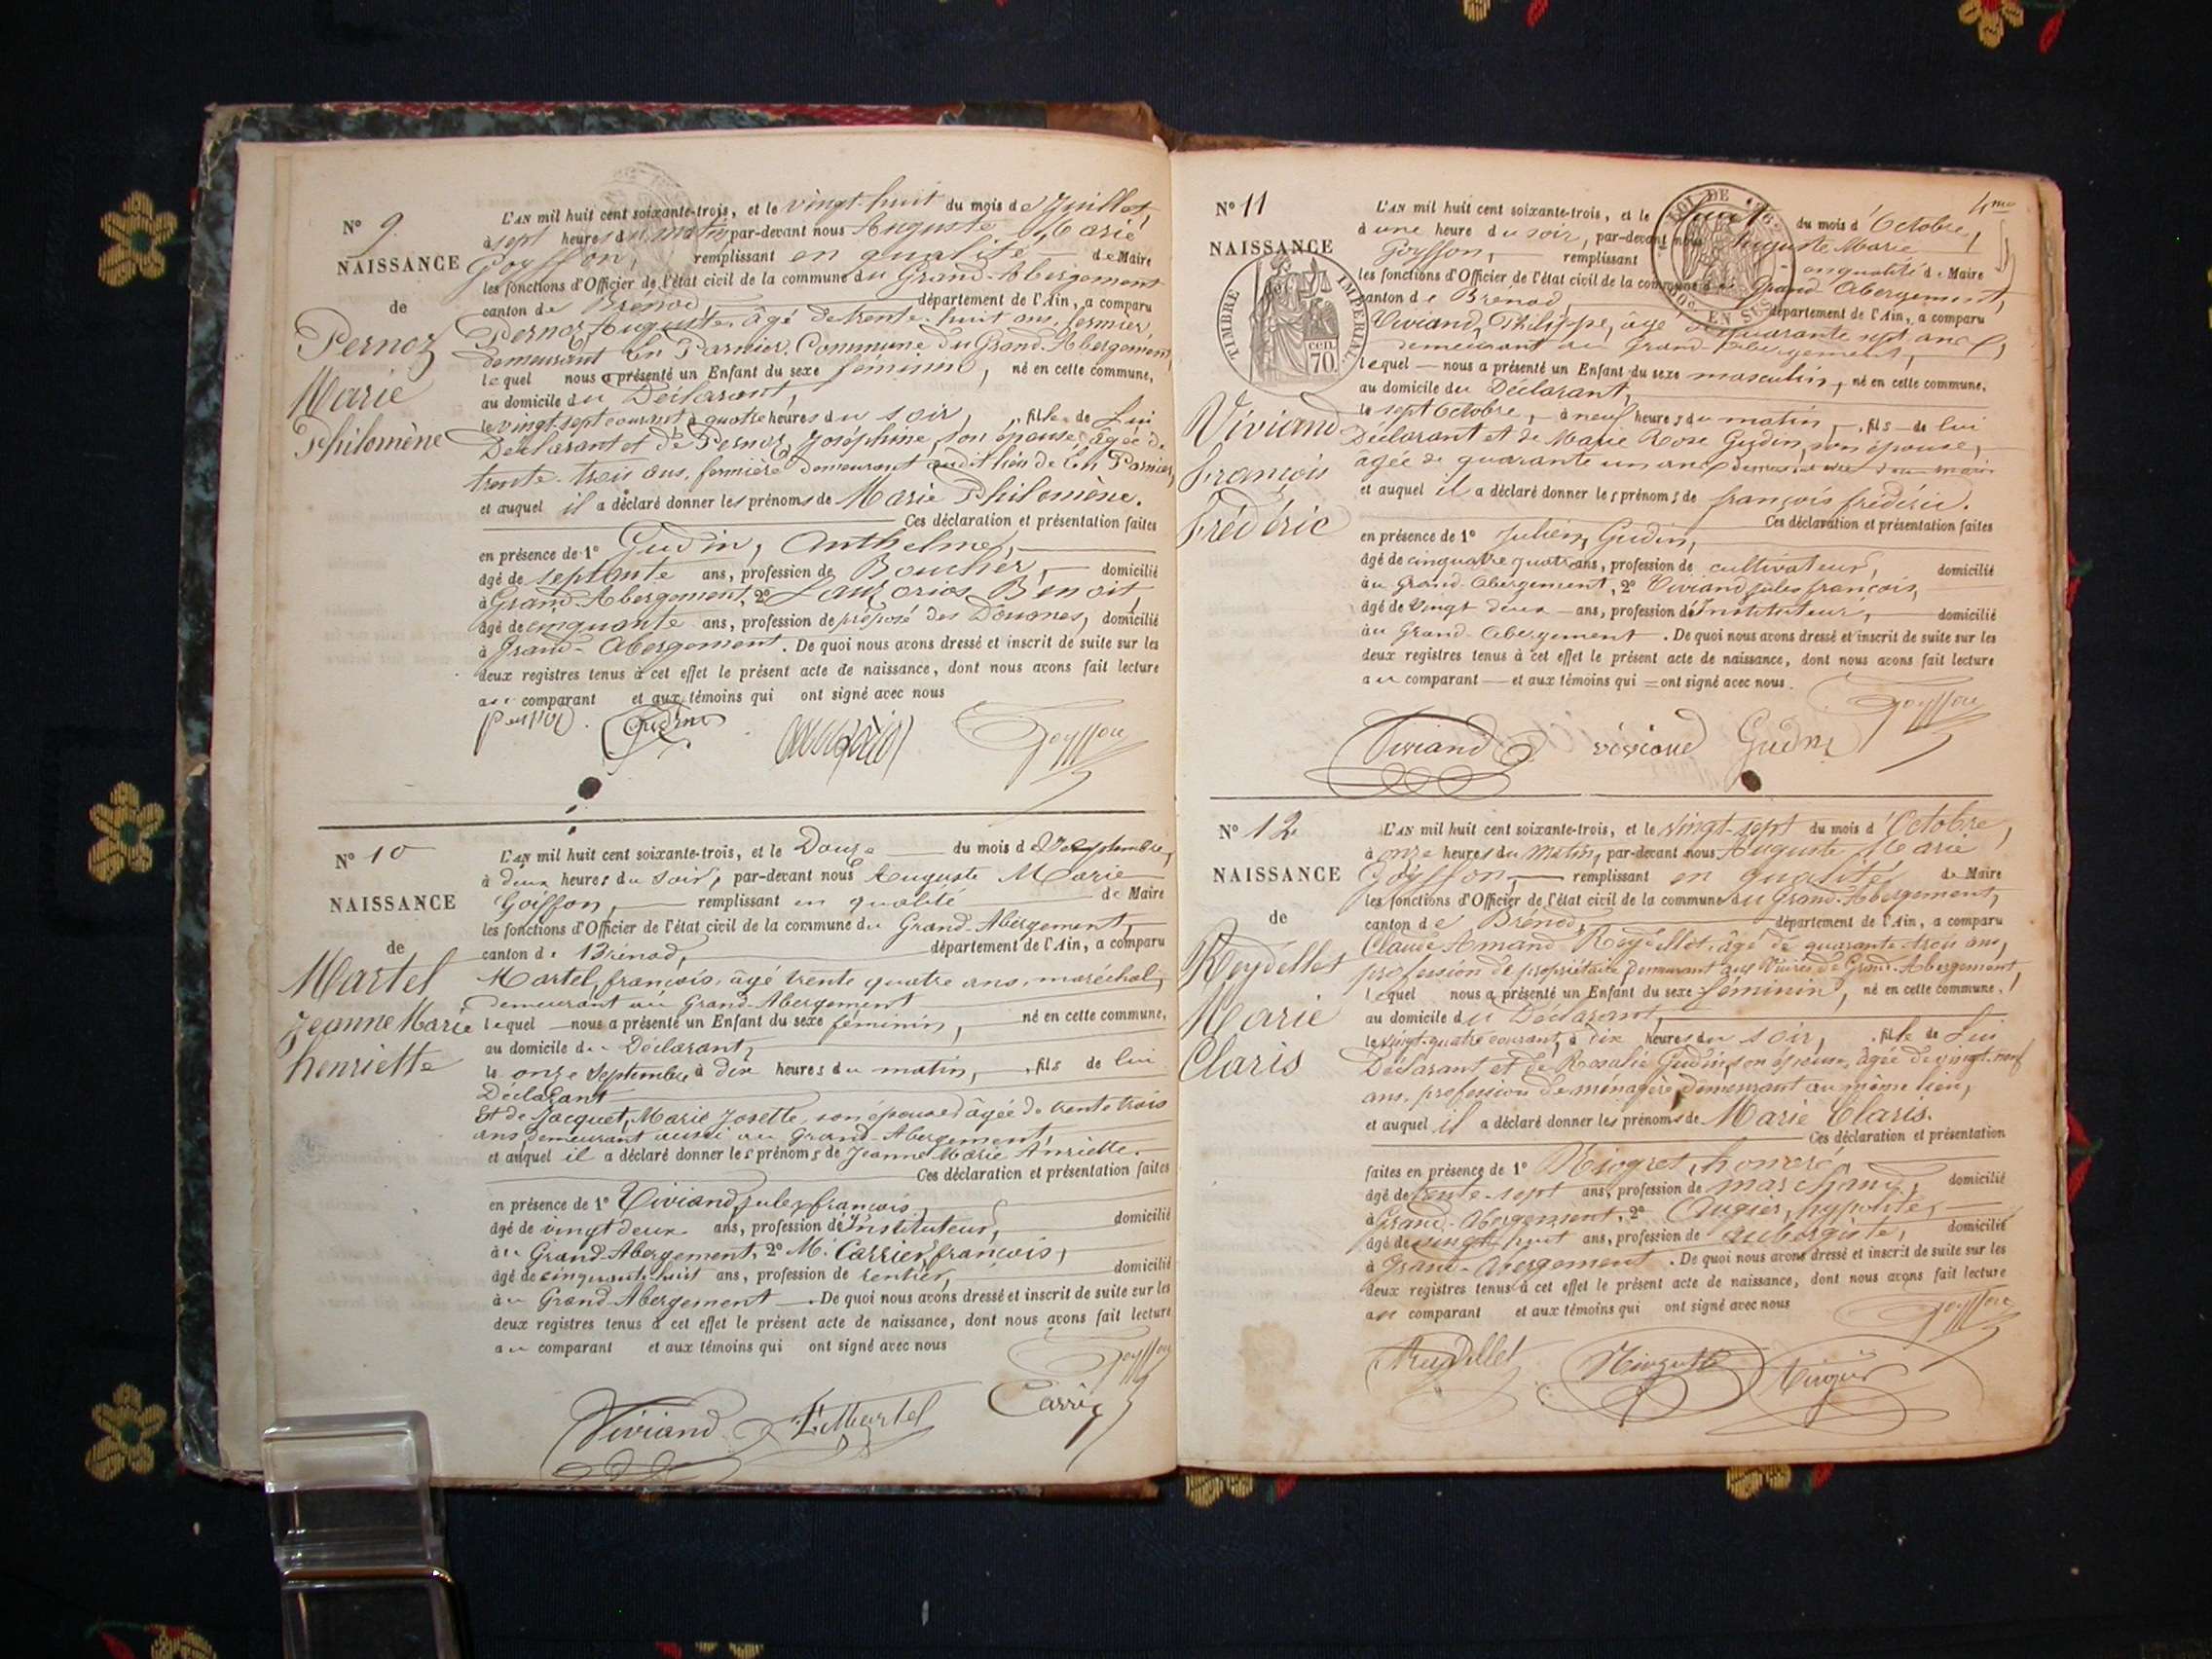 N° 9.
NAISSANCE
de
Pernoz
Marie
Philomène
L'AN mil huit cent soixante-trois, et le vingt-huit du mois de Juillet,
à sept heures du matin, par-devant nous Auguste Marie
Goyffon, remplissant en qualité de Maire
les fonctions d'Officier de l'état civil de la commune du Grand-Abergement
canton de Brénod, département de l'Ain, a comparu
Pernoz Auguste, âgé de trente-huit ans, fermier
demeurant En Parnier, Commune du Grand-Abergement
lequel nous a présenté un Enfant du sexe féminin, né en cette commune,
au domicile du Déclarant,
le vingt-sept courant à quatre heures du soir, fille de Lui
Déclarant et de Pernoz Joséphine, son épouse, âgée de
trente-trois ans, fermière demeurant audit lieu de En Parnier,
et auquel il a déclaré donner les prénoms de Marie Philomène.
Ces déclaration et présentation faites
en présence de 1° Gudin, Anthelme,
âgé de septante ans, profession de Boucher, domicilié
à Grand-Abergement, 2° Benoit
âgé de cinquante ans, profession de préposé des Douanes, domicilié
à Grand-Abergement. De quoi nous avons dressé et inscrit de suite sur les
deux registres tenus à cet effet le présent acte de naissance, dont nous avons fait lecture
au comparant et aux témoins qui ont signé avec nous
Gudin Goyffon
N° 10
NAISSANCE
de
Martel
Jeanne Marie
henriette
L'AN mil huit cent soixante-trois, et le Douze du mois de Septembre,
à deux heures du soir, par-devant nous Auguste Marie
Goiffon, remplissant en qualité de Maire
les fonctions d'Officier de l'état civil de la commune du Grand-Abergement,
canton de Brénod, département de l'Ain, a comparu
Martel, françois, âgé trente quatre ans, maréchal,
demeurant au Grand-Abergement
lequel nous a présenté un Enfant du sexe féminin, né en cette commune,
au domicile du Déclarant,
le onze Septembre à dix heures du matin, fils de lui
Déclarant
Et de Jacquet, Marie Josette, son épouse âgée de trente trois
ans, demeurant aussi au Grand-Abergement,
et auquel il a déclaré donner les prénoms de Jeanne Marie henriette.
Ces déclaration et présentation faites
en présence de 1° Viviand, jules françois
âgé de vingt deux ans, profession d'Instituteur, domicilié
au Grand-Abergement, 2° M. Carrier, françois,
âgé de cinquante huit ans, profession de rentier, domicilié
au Grand-Abergement De quoi nous avons dressé et inscrit de suite sur les
deux registres tenus à cet effet le présent acte de naissance, dont nous avons fait lecture
au comparant et aux témoins qui ont signé avec nous
Goyffon
Viviand Martel Carrier
4me
N° 11
NAISSANCE
TIMBRE IMPÉRIAL
70 cen
LOI DE 1862
EN SUS
Viviand
François
Frédéric
L'AN mil huit cent soixante-trois, et le sept du mois d'Octobre,
à une heure du soir, par-devant nous Auguste Marie
Goyffon, remplissant en qualité de Maire
les fonctions d'Officier de l'état civil de la commune du Grand Abergement,
canton de Brénod, département de l'Ain, a comparu
Viviand, Philippe, âgé de quarante sept ans
demeurant au Grand-Abergement,
lequel nous a présenté un Enfant du sexe masculin, né en cette commune.
au domicile du Déclarant,
le sept Octobre, à neuf heures du matin, fils de lui
Déclarant et de Marie Rose Gudin, son épouse,
âgée de quarante un ans
et auquel il a déclaré donner les prénoms de françois frédéric.
Ces déclaration et présentation faites
en présence de 1° Julien, Gudin,
âgé de cinquante quatre ans, profession de cultivateur, domicilié
au Grand-Abergement, 2° Viviand jules françois,
âgé de Vingt deux ans, profession d'Instituteur, domicilié
au Grand-Abergement. De quoi nous avons dressé et inscrit de suite sur les
deux registres tenus à cet effet le présent acte de naissance, dont nous avons fait lecture
au comparant et aux témoins qui ont signé avec nous.
Goyffon
Viviand viviand Gudin
N° 12
NAISSANCE
de
Reydellet
Marie
Claris
L'AN mil huit cent soixante-trois, et le vingt-sept du mois d'Octobre,
à onze heures du matin, par-devant nous Auguste Marie
Goyffon, remplissant en qualité de Maire
les fonctions d'Officier de l'état civil de la commune du Grand-Abergement,
canton de Brénod, département de l'Ain, a comparu
Claude Amand Reydellet, âgé de quarante-trois ans,
profession de propriétaire demeurant aux de Grand-Abergement,
lequel nous a présenté un Enfant du sexe féminin, né en cette commune.
au domicile du Déclarant,
le vingt-quatre courant, à dix heures du soir, fille de Lui
Déclarant et de Rosalie Gudin, son épouse, âgée de vingt-neuf
ans, profession de ménagère, demeurant au même lieu,
et auquel il a déclaré donner les prénoms de Marie Claris.
Ces déclaration et présentation
faites en présence de 1° Niogret, honoré,
âgé de trente-sept ans, profession de marchand, domicilié
à Grand-Abergement, 2° Augier, hypolite,
âgé de vingt huit ans, profession de aubergiste, domicilié
à Grand-Abergement. De quoi nous avons dressé et inscrit de suite sur les
deux registres tenus à cet effet le présent acte de naissance, dont nous avons fait lecture
au comparant et aux témoins qui ont signé avec nous
Goyffon
Reydellet Niogret Augier